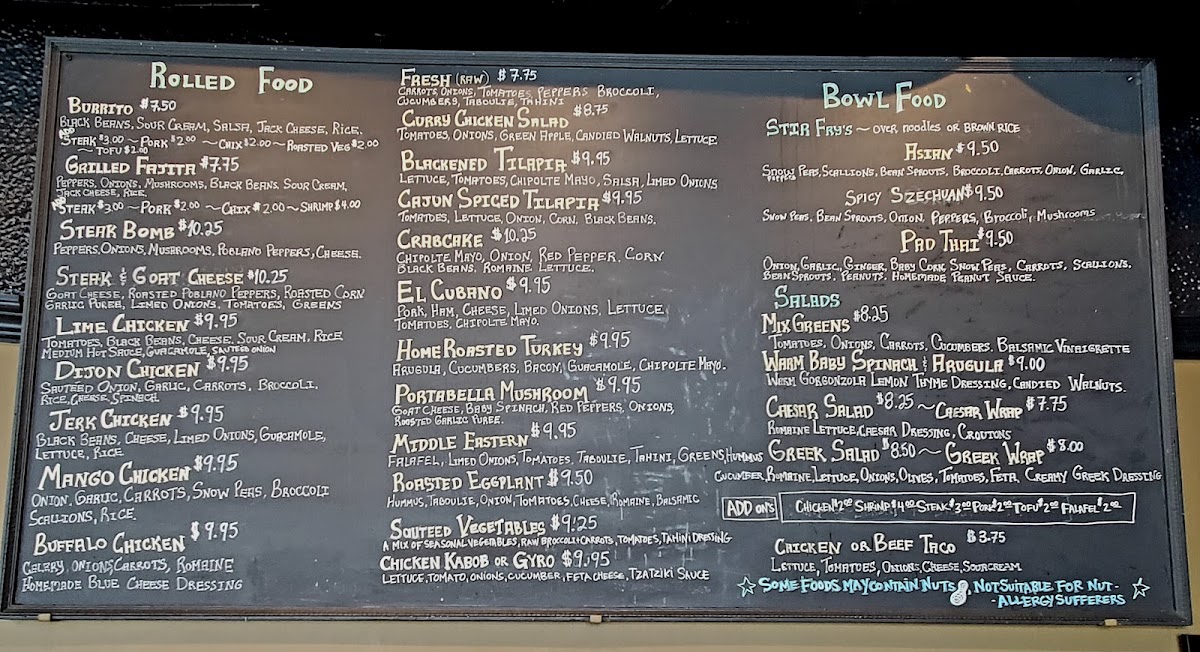 ROLLED FOOD
BURRITO $7.50
BLACK BEANS, SOUR CREAM, SALSA, JACK CHEESE, RICE.
ADD STEAK $3.00 ~ PORK $2.00 ~ CHIX $2.00 ~ ROASTED VEG $2.00
~ TOFU $2.00
GRILLED FAJITA $7.75
PEPPERS, ONIONS, MUSHROOMS, BLACK BEANS, SOUR CREAM,
JACK CHEESE, RICE
ADD STEAK $3.00 ~ PORK $2.00 ~ CHIX $2.00 ~ SHRIMP $4.00
STEAK BOMB $10.25
PEPPERS, ONIONS, MUSHROOMS, POBLANO PEPPERS, CHEESE.
STEAK & GOAT CHEESE $10.25
GOAT CHEESE, ROASTED POBLANO PEPPERS, ROASTED CORN
GARLIC PUREE, LIMED ONIONS, TOMATOES, GREENS
LIME CHICKEN $9.95
TOMATOES, BLACK BEANS, CHEESE, SOUR CREAM, RICE
MEDIUM HOT SAUCE, GUACAMOLE, SAUTEED ONION
DIJON CHICKEN $9.95
SAUTEED ONION, GARLIC, CARROTS, BROCCOLI.
RICE, CHEESE, SPINACH
JERK CHICKEN $9.95
BLACK BEANS, CHEESE, LIMED ONIONS, GUACAMOLE,
LETTUCE, RICE
MANGO CHICKEN $9.95
ONION, GARLIC, CARROTS, SNOW PEAS, BROCCOLI
SCALLIONS, RICE.
BUFFALO CHICKEN $9.95
CELERY, ONIONS, CARROTS, ROMAINE
HOMEMADE BLUE CHEESE DRESSING
FRESH (RAW) $7.75
CARROTS, ONIONS, TOMATOES, PEPPERS BROCCOLI,
CUCUMBERS, TABOULIE, TAHINI
CURRY CHICKEN SALAD $8.75
TOMATOES, ONIONS, GREEN APPLE, CANDIED WALNUTS, LETTUCE
BLACKENED TILAPIA $9.95
LETTUCE, TOMATOES, CHIPOLTE MAYO, SALSA, LIMED ONIONS
CAJUN SPICED TILAPIA $9.95
TOMATOES, LETTUCE, ONION, CORN, BLACK BEANS.
CRABCAKE $10.25
CHIPOLTE MAYO, ONION, RED PEPPER, CORN
BLACK BEANS, ROMAINE LETTUCE.
EL CUBANO $9.95
PORK, HAM, CHEESE, LIMED ONIONS, LETTUCE
TOMATOES, CHIPOLTE MAYO.
HOME ROASTED TURKEY $9.95
ARUGULA, CUCUMBERS, BACON, GUACAMOLE, CHIPOLTE MAYO.
PORTABELLA MUSHROOM $9.95
GOAT CHEESE, BABY SPINACH, RED PEPPERS, ONIONS,
ROASTED GARLIC PUREE.
MIDDLE EASTERN $9.95
FALAFEL, LIMED ONIONS, TOMATOES, TABOULIE, TAHINI, GREENS, HUMMUS
ROASTED EGGPLANT $9.50
HUMMUS, TABOULIE, ONION, TOMATOES, CHEESE, ROMAINE, BALSAMIC
SAUTEED VEGETABLES $9.25
A MIX OF SEASONAL VEGETABLES, RAW BROCCOLI + CARROTS, TOMATOES, TAHINI DRESSING
CHICKEN KABOB OR GYRO $9.95
LETTUCE, TOMATO, ONIONS, CUCUMBER, FETA CHEESE, TZATZIKI SAUCE
BOWL FOOD
STIR FRY'S ~ OVER NOODLES OR BROWN RICE
ASIAN $9.50
SNOW PEAS, SCALLIONS, BEAN SPROUTS, BROCCOLI, CARROTS, ONION, GARLIC,
SPICY SZECHUAN $9.50
SNOW PEAS, BEAN SPROUTS, ONION, PEPPERS, BROCCOLI, MUSHROOMS
PAD THAI $9.50
ONION, GARLIC, GINGER, BABY CORN, SNOW PEAS, CARROTS, SCALLIONS.
BEAN SPROUTS, PEANUTS. HOMEMADE PEANUT SAUCE.
SALADS
MIX GREENS $8.25
TOMATOES, ONIONS, CARROTS, CUCUMBERS, BALSAMIC VINAIGRETTE
WARM BABY SPINACH & ARUGULA $9.00
WARM GORGONZOLA LEMON THYME DRESSING, CANDIED WALNUTS.
CAESAR SALAD $8.25 ~ CAESAR WRAP $7.75
ROMAINE LETTUCE, CAESAR DRESSING, CROUTONS
GREEK SALAD $8.50 ~ GREEK WRAP $8.00
CUCUMBER, ROMAINE, LETTUCE, ONIONS, OLIVES, TOMATOES, FETA, CREAMY GREEK DRESSING
ADD ON'S CHICKEN $2.00 SHRIMP $4.00 STEAK $3.00 PORK $2.00 TOFU $2.00 FALAFEL $2.00
CHICKEN OR BEEF TACO $3.75
LETTUCE, TOMATOES, ONIONS, CHEESE, SOUR CREAM
SOME FOODS MAY CONTAIN NUTS, NOT SUITABLE FOR NUT-
-ALLERGY SUFFERERS